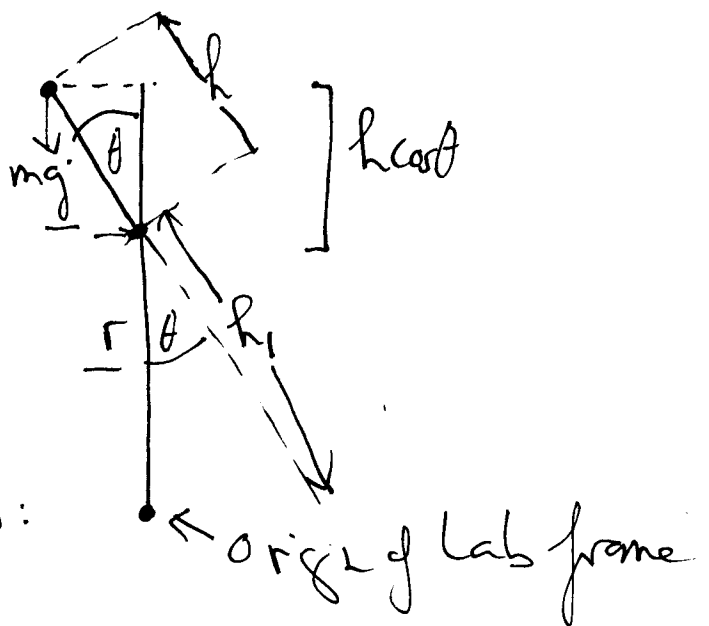 h
h cosθ
θ
mg
r
θ
h₁
:
Origin of Lab frame